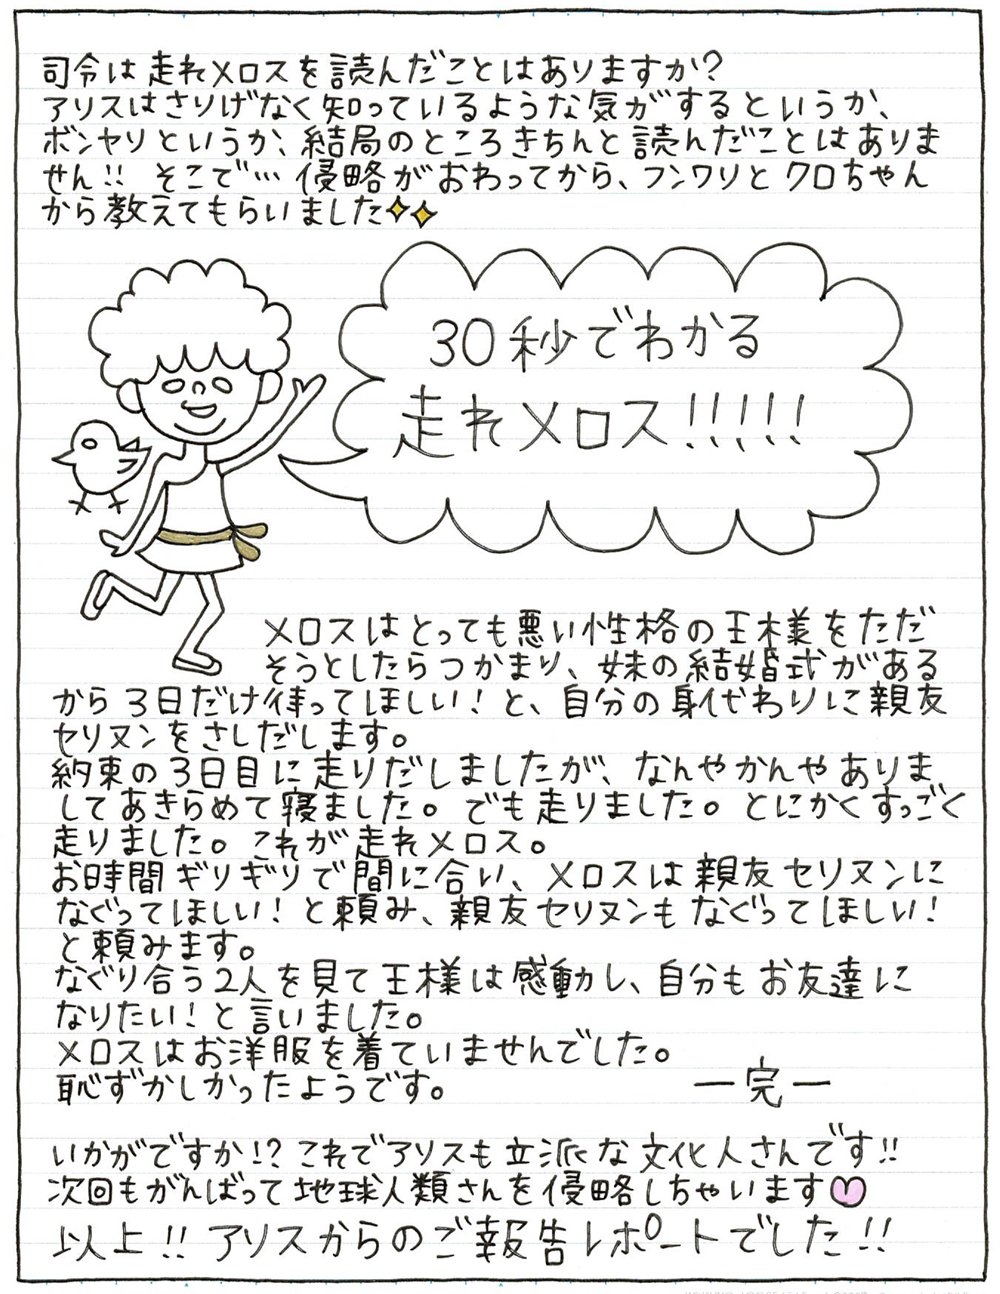 司令は走れメロスを読んだことはありますか？
アリスはさりげなく知っているような気がするというか、
ボンヤリというか、結局のところきちんと読んだことはありま
せん!! そこで…侵略がおわってから、フンワリとクロちゃん
から教えてもらいました
30秒でわかる
走れメロス!!!!!
メロスはとっても悪い性格の王様をただ
そうとしたらつかまり、妹の結婚式がある
から3日だけ待ってほしい！と、自分の身代わりに親友
セリヌンをさしだします。
約束の3日目に走りだしましたが、なんやかんやありま
してあきらめて寝ました。でも走りました。とにかくすっごく
走りました。これが走れメロス。
お時間ギリギリで間に合い、メロスは親友セリヌンに
なぐってほしい！と頼み、親友セリヌンもなぐってほしい！
と頼みます。
なぐり合う2人を見て王様は感動し、自分もお友達に
なりたい！と言いました。
メロスはお洋服を着ていませんでした。
恥ずかしかったようです。
―完―
いかがですか!? これでアリスも立派な文化人さんです!!
次回もがんばって地球人類さんを侵略しちゃいます
以上!! アリスからのご報告レポートでした!!